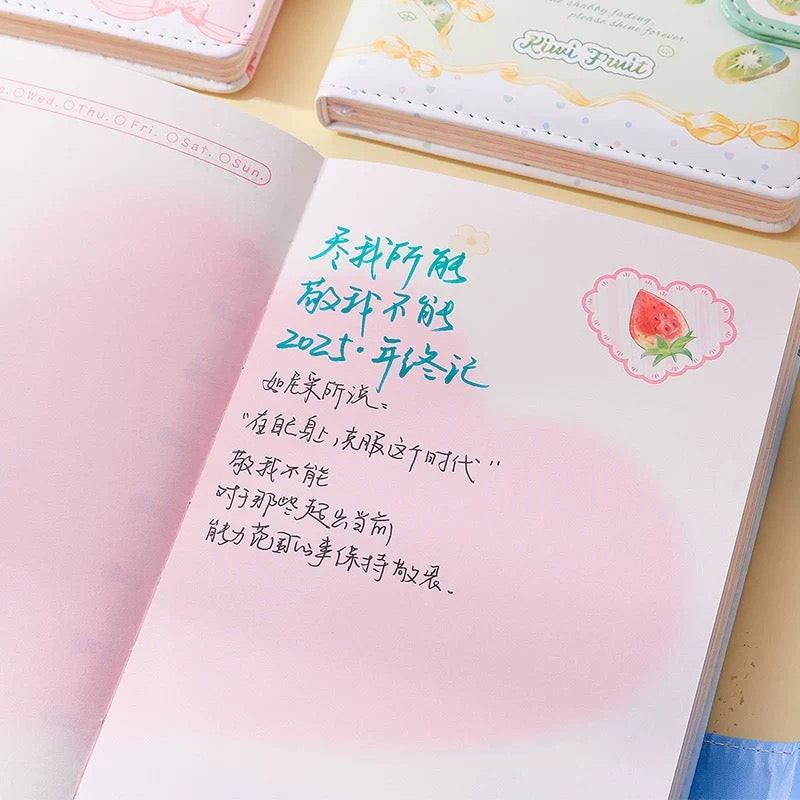 shabby fading.
please shine forever.
Kiwi Fruit
Wed. Thu. Fri. Sat. Sun.
尽我所能
敬我不能
2025·年终记
如尼采所说:
"在自己身上,克服这个时代"
敬我不能
对于那些超出当前
能力范围的事保持敬畏.